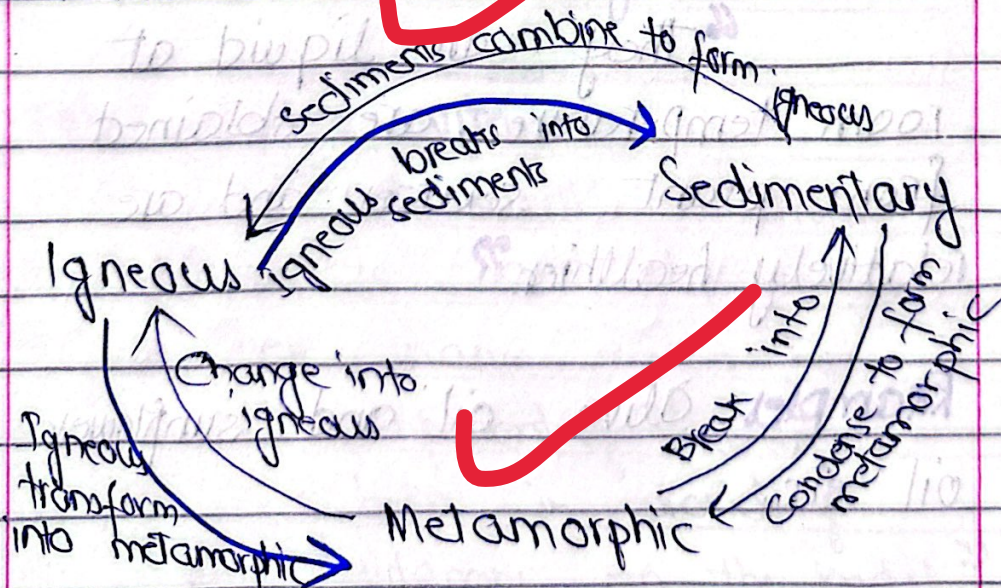 sediments combine to form
igneous
igneous breaks into
sediments
Sedimentary
Igneous
Change into
igneous
Igneous
transform
into metamorphic
Break into
Condense to form
metamorphic
Metamorphic